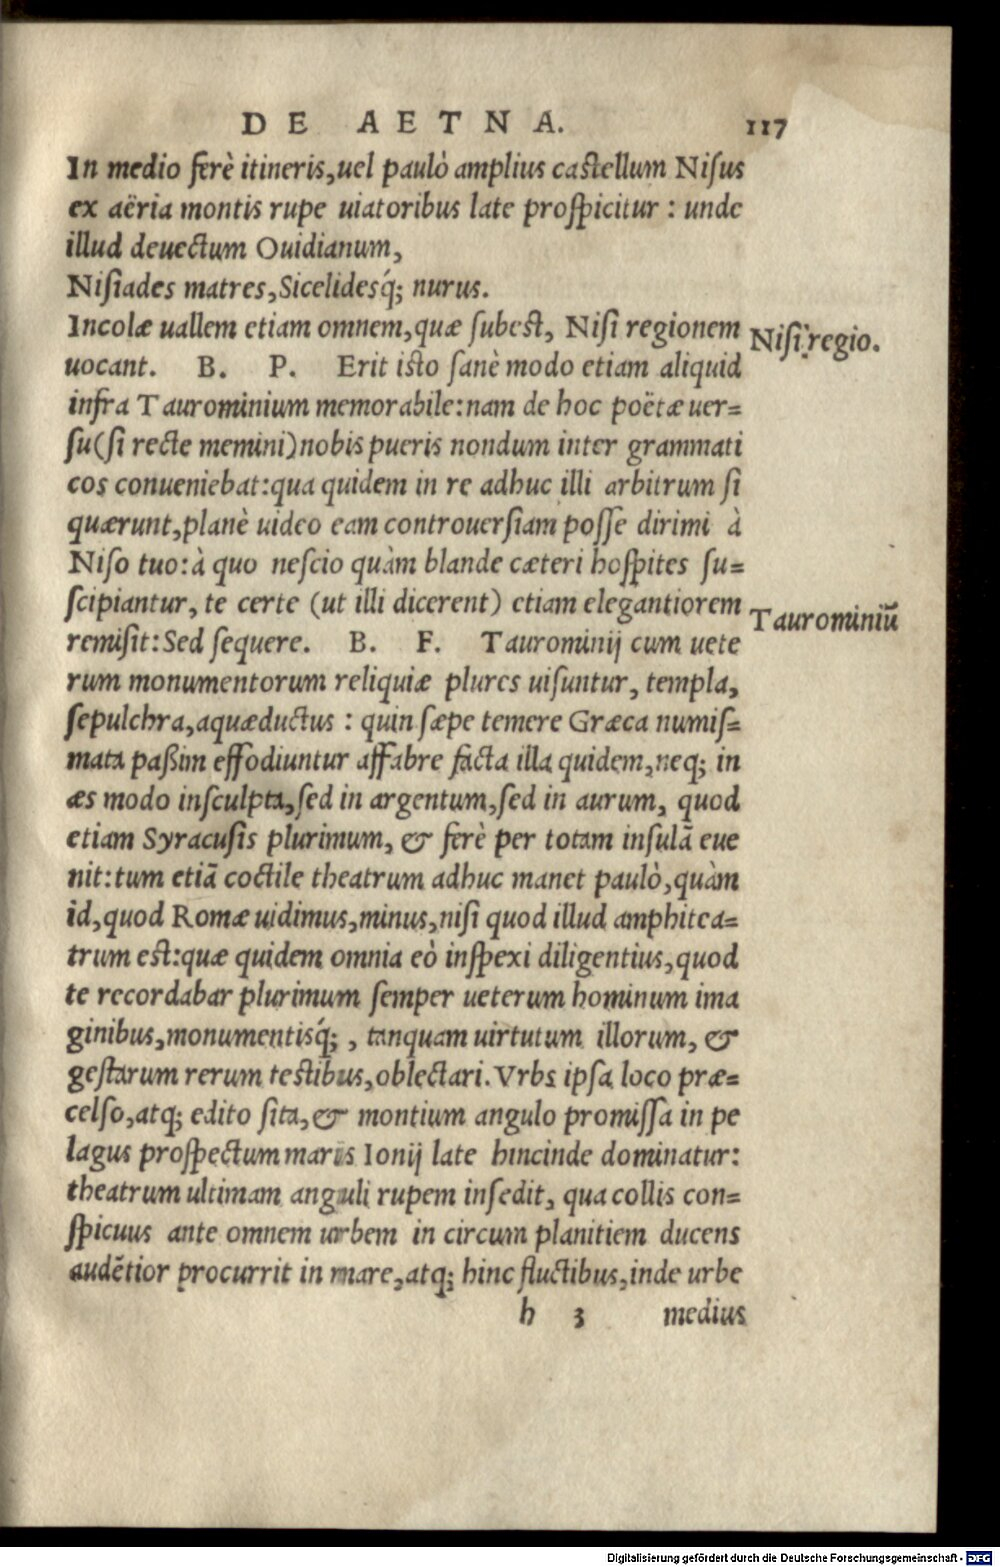 DE AETNA. 117
In medio ferè itineris, uel paulò amplius castellum Nisus
ex aëria montis rupe uiatoribus late prospicitur : unde
illud deuectum Ouidianum,
Nisiades matres, Sicelidesq́; nurus.
Incolæ uallem etiam omnem, quæ subest, Nisi regionem
Nisi regio.
uocant. B. P. Erit isto sanè modo etiam aliquid
infra Taurominium memorabile: nam de hoc poëtæ uer=
su (si recte memini) nobis pueris nondum inter grammati
cos conueniebat: qua quidem in re adhuc illi arbitrum si
quærunt, planè uideo eam controuersiam posse dirimi à
Niso tuo: à quo nescio quàm blande cæteri hospites su=
scipiantur, te certe (ut illi dicerent) etiam elegantiorem
Taurominiũ
remisit: Sed sequere. B. F. Taurominij cum uete
rum monumentorum reliquiæ plures uisuntur, templa,
sepulchra, aquæductus : quin sæpe temere Græca numis=
mata paßim effodiuntur affabre facta illa quidem, neq; in
æs modo insculpta, sed in argentum, sed in aurum, quod
etiam Syracusis plurimum, & ferè per totam insulã eue
nit: tum etiã coctile theatrum adhuc manet paulò, quàm
id, quod Romæ uidimus, minus, nisi quod illud amphitea=
trum est: quæ quidem omnia eò inspexi diligentius, quod
te recordabar plurimum semper ueterum hominum ima
ginibus, monumentisq́; , tanquam uirtutum illorum, &
gestarum rerum testibus, oblectari. Vrbs ipsa loco præ=
celso, atq; edito sita, & montium angulo promissa in pe
lagus prospectum maris Ionij late hincinde dominatur:
theatrum ultimam anguli rupem insedit, qua collis con=
spicuus ante omnem urbem in circum planitiem ducens
audẽtior procurrit in mare, atq; hinc fluctibus, inde urbe
h 3 medius
Digitalisierung gefördert durch die Deutsche Forschungsgemeinschaft - DFG